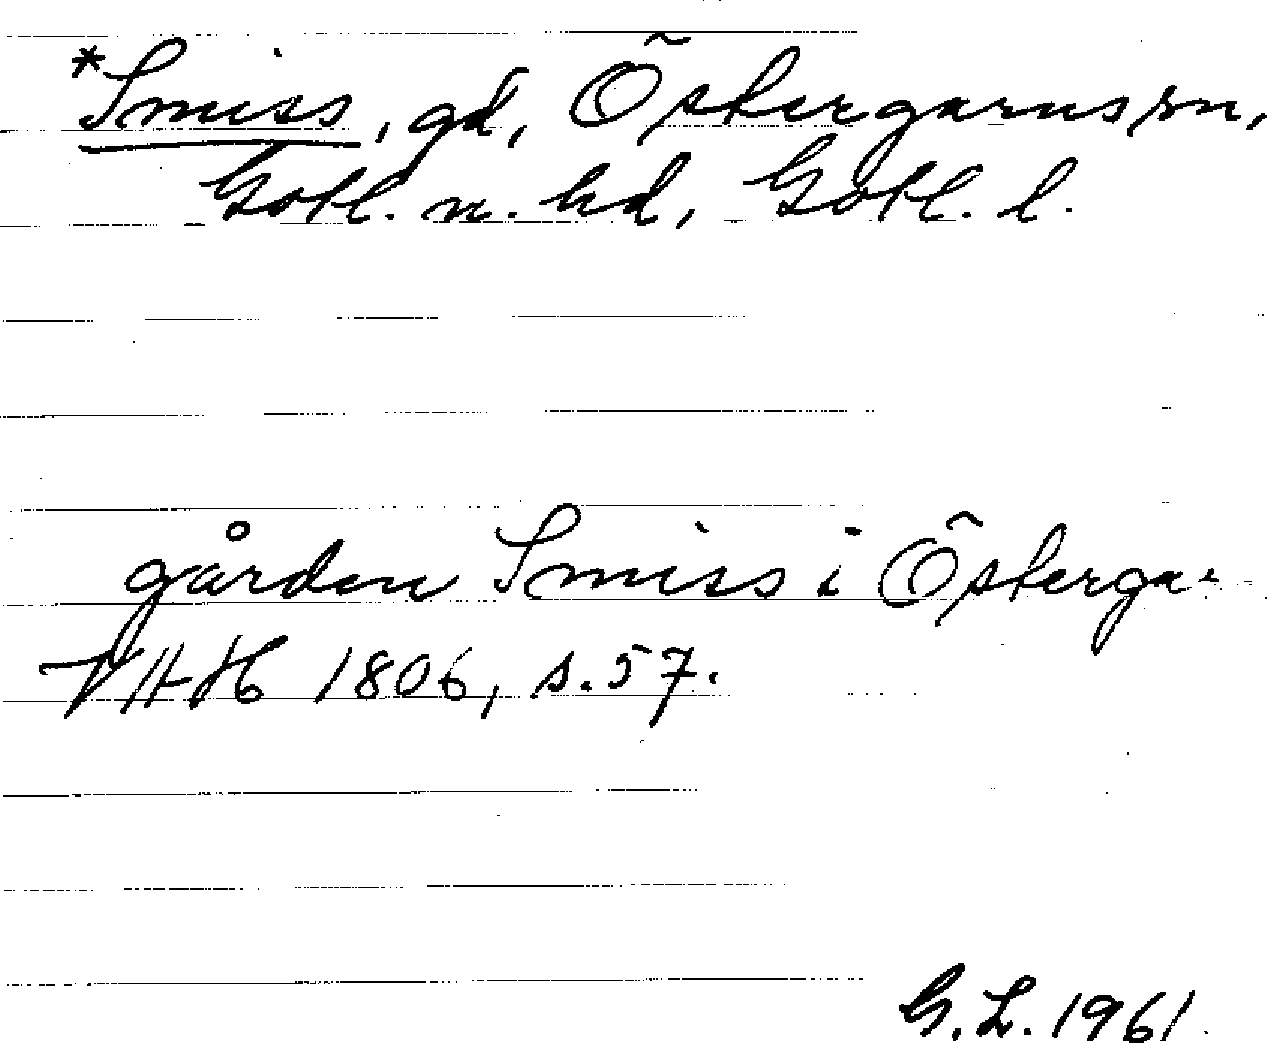 *Smiss, gd, Östergarns sn,
Gotl. n. hd, Gotl. l.
gården Smiss i Österga-
VHH 1806, s. 57.
G. L. 1961.